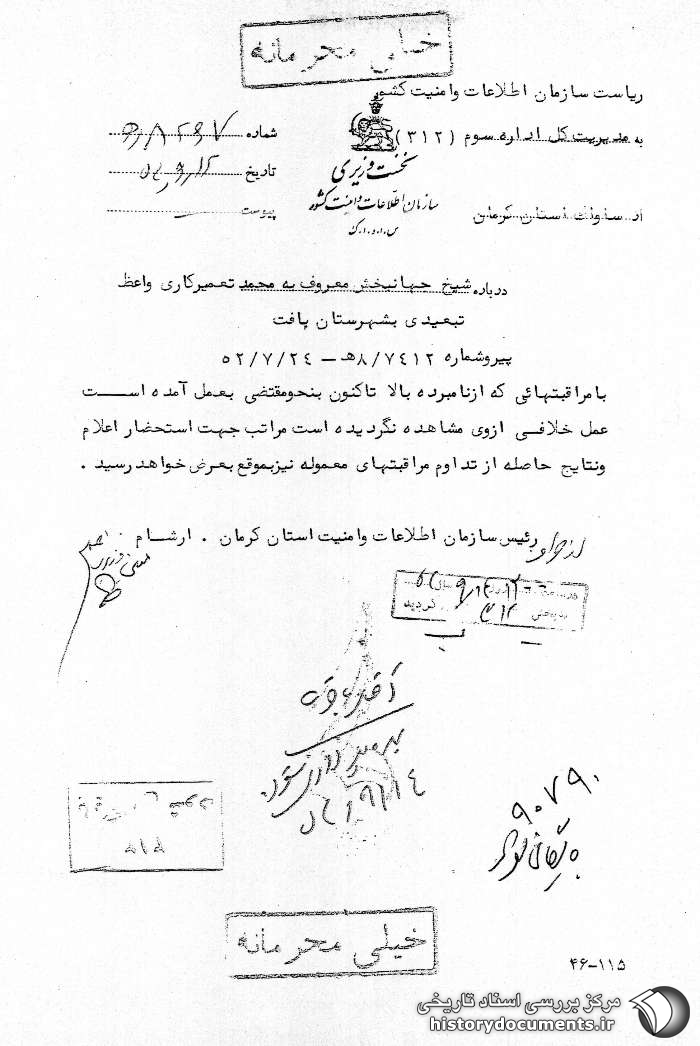 خیلی محرمانه
ریاست سازمان اطلاعات وامنیت کشور
به مدیریت کل اداره سوم (۳۱۲)
شماره
نخست وزیری
تاریخ
سازمان اطلاعات و امنیت کشور
پیوست
س.ا.و.ا.ک
از ساواک استان کرمان
درباره شیخ جهانبخش معروف به محمد تعمیرکاری واعظ
تبعیدی بشهرستان بافت
پیروشماره ۸/۷۴۱۲هـ – ۵۲/۷/۲۴
بامراقبتهائی که ازنامبرده بالا تاکنون بنحومقتضی بعمل آمده است
عمل خلافی ازوی مشاهده نگردیده است مراتب جهت استحضار اعلام
ونتایج حاصله از تداوم مراقبتهای معموله نیزبموقع بعرض خواهد رسید .
رئیس سازمان اطلاعات وامنیت استان کرمان . ارشام
گردید
۹۰۷۹۰
خیلی محرمانه
۴۶-۱۱۵
مرکز بررسی اسناد تاریخی
historydocuments.ir